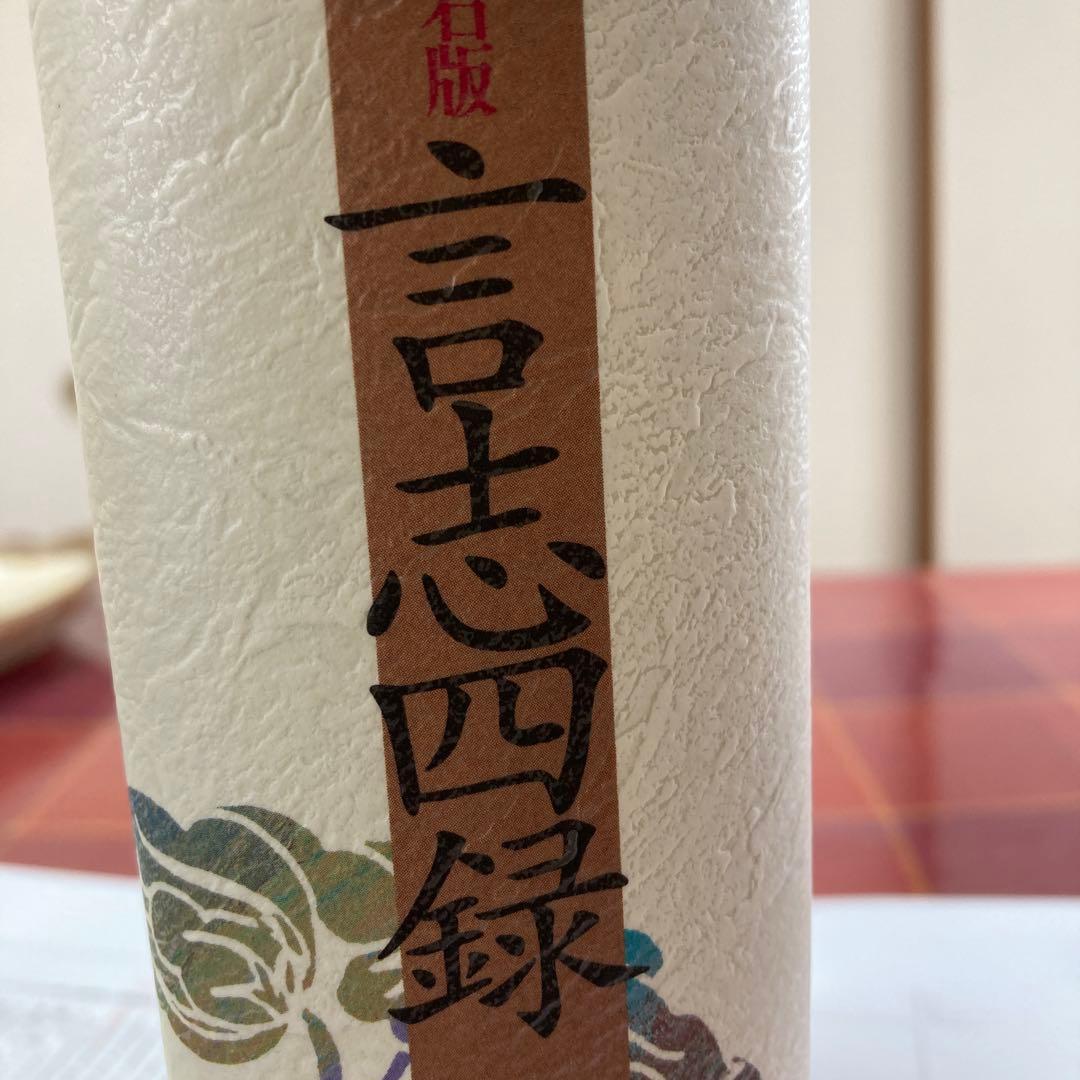 版
言志四録